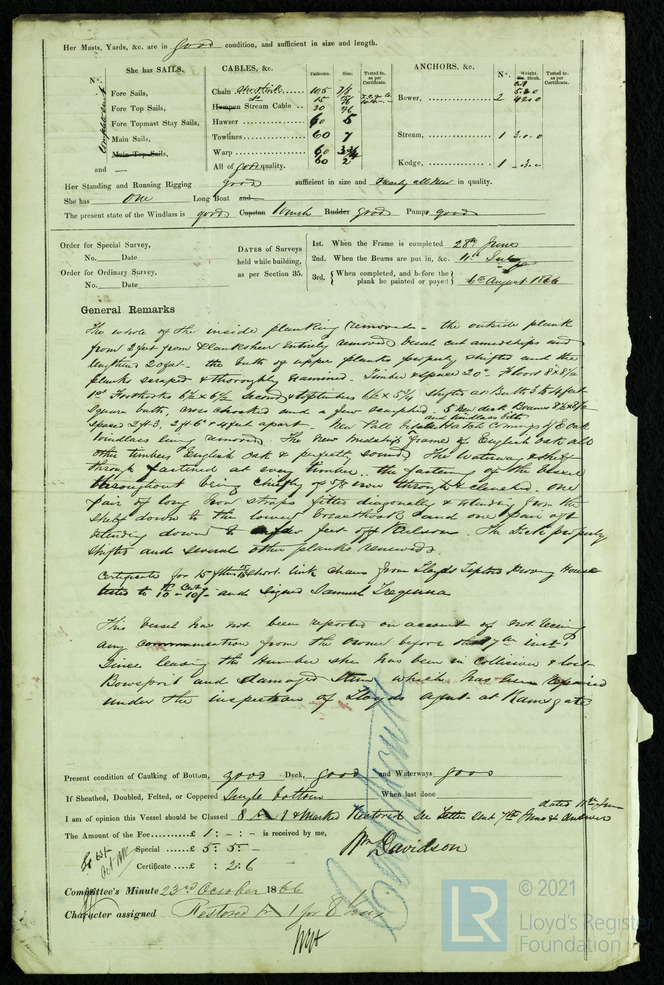 Her Masts, Yards, &c. are in good condition, and sufficient in size and length.
She has SAILS.
N°.
Fore Sails,
Fore Top Sails,
Fore Topmast Stay Sails,
Main Sails,
Main Top Sails,
and —
CABLES, &c. Fathoms. Size. Tested to as per Certificate.
Chain 105 7/8
Hempen Stream Cable ..
Hawser 60 5
Towlines 60 7
Warp 60
All of good quality. 60 2
ANCHORS, &c. N°. Weight. Ex. Stock. Tested to as per Certificate.
Bower, 2
Stream, 1 3.0.0
Kedge, 1
Her Standing and Running Rigging good sufficient in size and nearly all New in quality.
She has one Long Boat and
The present state of the Windlass is good Capstan Winch Rudder good Pumps good
Order for Special Survey,
No. Date
Order for Ordinary Survey,
No. Date
DATES of Surveys
held while building,
as per Section 35.
1st. When the Frame is completed 28th June
2nd. When the Beams are put in, &c. 11th July
3rd. { When completed, and before the plank be painted or payed } 4th August 1866
General Remarks
The whole of the inside planking removed - the outside plank
from 2 feet from Planksheer entirely removed, Vessel cut amidships and
lengthened 20 feet - the butts of upper planks properly shifted and the
planks scraped & thoroughly examined. Timber & space 20 in. Floors 8 x 8 1/2
1st Foothooks second & Toptimbers Shifts at Butts 3 to 4 feet
Square butts, cross chocked and a few scarphed. 5 new deck Beams
spaced apart - New Pall Bitts Hatch Comings of E Oak
and windlass bitts
Windlass being removed. The New Midship Frame of English Oak all
other timbers English Oak & perfectly sound. The Waterway & Shelf
through fastened at every timber. the fastening of the Vessel
throughout being chiefly of 5/8 iron through & clenched. One
pair of long Iron straps fitted diagonally & extending from the
shelf down to the lower breasthook and one pair aft
extending down to a few feet off Keelson. The Deck properly
shifted and several other planks renewed.
Certificate for 15 fthms short link chain from Lloyds Tipton Proving House
tested to and signed Samuel Tregenna
This Vessel has not been reported on account of not receiving
any communication from the Owner before the 17th inst.
Since leaving the Humber she has been in collision & lost
Bowsprit and damaged Stem which has been repaired
under the inspection of Lloyds agent at Ramsgate
Present condition of Caulking of Bottom, good Deck, good and Waterways good
If Sheathed, Doubled, Felted, or Coppered Single bottom When last done
I am of opinion this Vessel should be Classed 8 A 1 & Marked Restored See Letter sent 7th June & answer
dated 11th June
The Amount of the Fee......£ 1 : - : - is received by me,
Special ....£ 5 : 5 : -
Certificate ....£ : 2 : 6
Wm Davidson
Committee's Minute 23rd October 1866
Character assigned Restored for A 1 for 8 Years
© 2021
LR
Lloyd's Register
Foundation